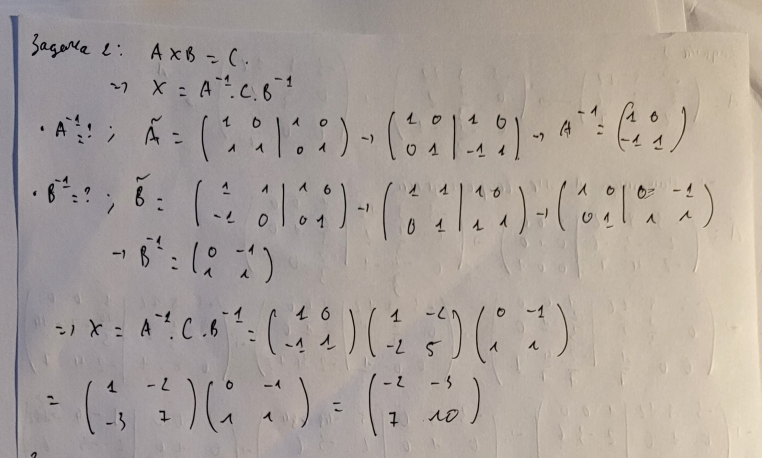 Задача 2: A X B = C.
=> X = A^-1 . C . B^-1
• A^-1 = ? ; Ã = (1 0 | 1 0 ; 1 1 | 0 1) → (1 0 | 1 0 ; 0 1 | -1 1) → A^-1 = (1 0 ; -1 1)
• B^-1 = ? ; B̃ = (1 1 | 1 0 ; -1 0 | 0 1) → (1 1 | 1 0 ; 0 1 | 1 1) → (1 0 | 0 -1 ; 0 1 | 1 1)
→ B^-1 = (0 -1 ; 1 1)
=> X = A^-1 . C . B^-1 = (1 0 ; -1 1) (1 -2 ; -2 5) (0 -1 ; 1 1)
= (1 -2 ; -3 7) (0 -1 ; 1 1) = (-2 -3 ; 7 10)